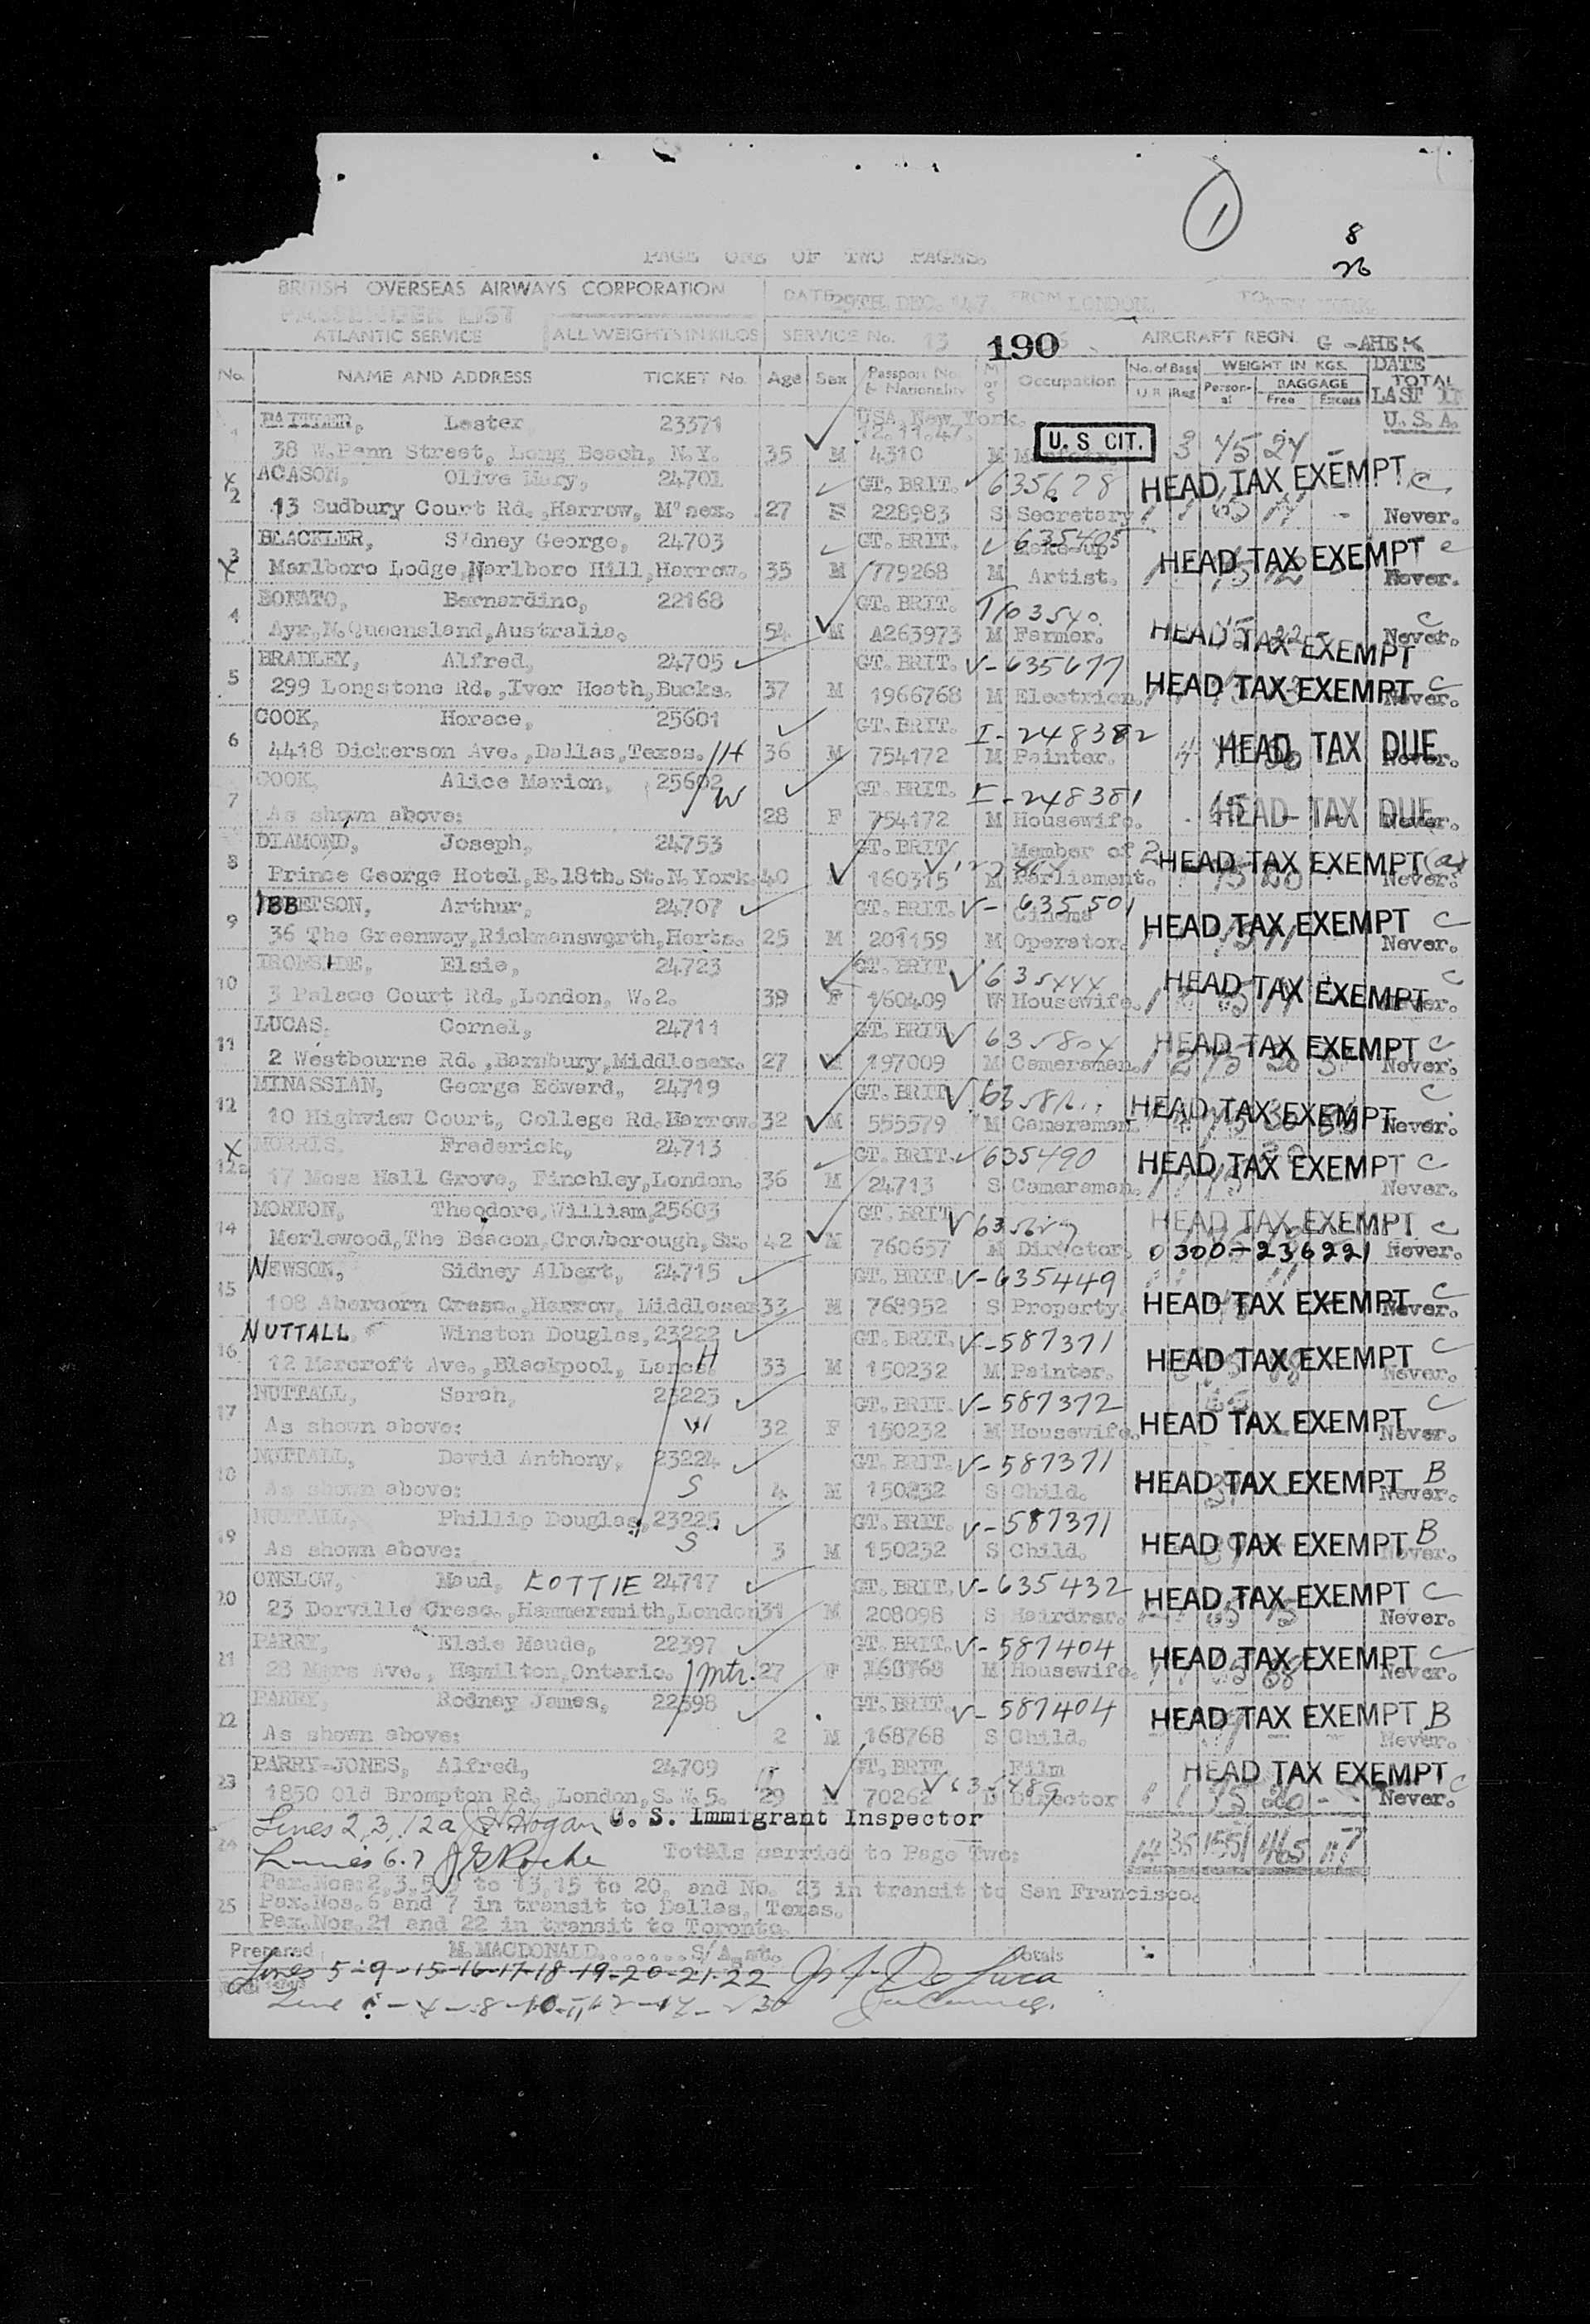 1
8
26
PAGE ONE OF TWO PAGES.
BRITISH OVERSEAS AIRWAYS CORPORATION DATE 29TH. DEC. '47 FROM LONDON. TO NEW YORK.
PASSENGER LIST
ATLANTIC SERVICE ALL WEIGHTS IN KILOS SERVICE No. 13 190 AIRCRAFT REGN. G-AHEK
No. NAME AND ADDRESS TICKET No. Age Sex Passport No. & Nationality M or S Occupation No. of Bags U.R Reg WEIGHT IN KGS. Personal BAGGAGE Free Excess TOTAL DATE LAST IN U.S.A.
Lester 23371 USA New York.
12.11.47.
38 W.Penn Street, Long Beach, N.Y. 35 M 4310 M U. S CIT. 3 75 24 -
ACASON, Olive Mary, 24701 GT. BRIT. 635678 HEAD TAX EXEMPT C
2 13 Sudbury Court Rd.,Harrow, M'sex. 27 228983 S Secretary Never.
BLACKLER, Sidney George, 24703 GT. BRIT. 635405 Make-up HEAD TAX EXEMPT c
3 Marlboro Lodge,Marlboro Hill,Harrow. 35 M 779268 M Artist. Never.
BONATO, Bernardino, 22168 GT. BRIT. T103540 C
4 Ayr,N.Queensland,Australia. 54 M A263973 M Farmer. HEAD TAX EXEMPT Never.
BRADLEY, Alfred, 24705 GT. BRIT. V-635677
5 299 Longstone Rd.,Iver Heath,Bucks. 37 M 1966768 M Electrician. HEAD TAX EXEMPT C Never.
COOK, Horace, 25601 GT. BRIT. I-248382
6 4418 Dickerson Ave.,Dallas,Texas. H 36 M 754172 M Painter. 4 HEAD TAX DUE Never.
COOK, Alice Marion, 25602 W GT. BRIT. I-248381
7 As shown above: 28 F 754172 M Housewife. HEAD TAX DUE Never.
DIAMOND, Joseph, 24753 GT. BRIT. Member of HEAD TAX EXEMPT (a)
8 Prince George Hotel,E.18th.St.N.York. 40 160315 M Parliament. Never.
IBBETSON, Arthur, 24707 GT. BRIT. V-635501 Cinema HEAD TAX EXEMPT C
9 36 The Greenway,Rickmansworth,Herts. 25 M 201159 M Operator. Never.
IRONSIDE, Elsie, 24723 GT. BRIT V 635444 HEAD TAX EXEMPT C
10 3 Palace Court Rd.,London, W.2. 39 F 160409 W Housewife. Never.
LUCAS. Cornel, 24711 GT. BRIT V 635804 HEAD TAX EXEMPT C
11 2 Westbourne Rd.,Barnbury,Middlesex. 27 M 197009 M Cameraman. Never.
MINASSIAN, George Edward, 24719 GT. BRIT V HEAD TAX EXEMPT C
12 10 Highview Court, College Rd.Harrow. 32 M 555579 M Cameraman. Never.
MORRIS Frederick, 24713 GT. BRIT. 635490 HEAD TAX EXEMPT C
12a 17 Moss Hall Grove, Finchley,London. 36 M 24713 S Cameraman. Never.
MORTON, Theodore,William,25603 GT. BRIT V HEAD TAX EXEMPT C
14 Merlewood,The Beacon,Crowborough,Sx. 42 M 760657 M Director. 0300-236221 Never.
NEWSON, Sidney Albert, 24715 GT. BRIT. V-635449
15 108 Abercorn Cresc.,Harrow, Middlesex 33 M 768952 S Property. HEAD TAX EXEMPT C Never.
NUTTALL Winston Douglas, 23222 GT. BRIT. V-587371
16 12 Marcroft Ave.,Blackpool, Lancs. H 33 M 150232 M Painter. HEAD TAX EXEMPT C Never.
NUTTALL, Sarah, 23223 GT. BRIT. V-587372
17 As shown above: W 32 F 150232 M Housewife. HEAD TAX EXEMPT C Never.
NUTTALL, David Anthony, 23224 GT. BRIT. V-587371
18 As shown above: S 4 M 150232 S Child. HEAD TAX EXEMPT B Never.
NUTTALL, Phillip Douglas, 23225 GT. BRIT. V-587371
19 As shown above: S 3 M 150232 S Child. HEAD TAX EXEMPT B Never.
ONSLOW, Maud, LOTTIE 24717 GT. BRIT. V-635432 HEAD TAX EXEMPT C
20 23 Dorville Cresc.,Hammersmith,London 31 M 208098 S Hairdrsr. Never.
PARRY, Elsie Maude, 22397 GT. BRIT. V-587404 HEAD TAX EXEMPT C
21 28 Mars Ave., Hamilton,Ontario. mtr. 27 F 168768 M Housewife. Never.
PARRY, Rodney James, 22398 GT. BRIT. V-587404 HEAD TAX EXEMPT B
22 As shown above: 2 M 168768 S Child. Never.
PARRY-JONES, Alfred, 24709 GT. BRIT. V 635489 Film HEAD TAX EXEMPT
23 1850 Old Brompton Rd. London,S.W.5. 29 M 70262 Director Never. C
Lines 2, 3, 12a Hogan U. S. Immigrant Inspector
24 Lines 6.7 Roche Totals carried to Page Two: 14 35 1551 465 117
Pax.Nos: 2,3,5,9 to 13,15 to 20, and No. 23 in transit to San Francisco.
25 Pax.Nos. 6 and 7 in transit to Dallas, Texas.
Pax.Nos.21 and 22 in transit to Toronto.
Prepared M.MACDONALD.......S/A.st. Totals
Lines 5-9-15-16-17-18-19-20-21-22 De Luca
Line